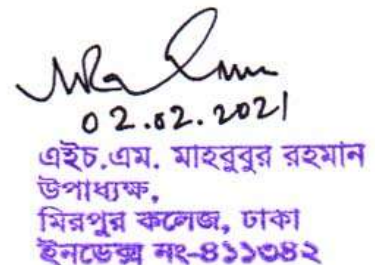 02.02.2021
এইচ.এম. মাহবুবুর রহমান
উপাধ্যক্ষ,
মিরপুর কলেজ, ঢাকা
ইনডেক্স নং-৪১১৩৪২